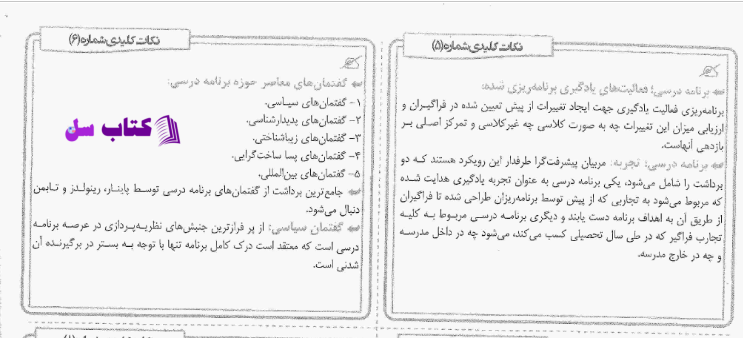 نکات کلیدی شماره (۵)
برنامه درسی؛ فعالیت‌های یادگیری برنامه‌ریزی شده:
برنامه‌ریزی فعالیت یادگیری جهت ایجاد تغییرات از پیش تعیین شده در فراگیران و
ارزیابی میزان این تغییرات چه به صورت کلاسی چه غیرکلاسی و تمرکز اصلی بر
بازدهی آنهاست.
برنامه درسی؛ تجربه. مربیان پیشرفت‌گرا طرفدار این رویکرد هستند که دو
برداشت را شامل می‌شود، یکی برنامه درسی به عنوان تجربه یادگیری هدایت شده
که مربوط می‌شود به تجاربی که از پیش توسط برنامه‌ریزان طراحی شده تا فراگیران
از طریق آن به اهداف برنامه دست یابند و دیگری برنامه درسی مربوط به کلیه
تجارب فراگیر که در طی سال تحصیلی کسب می‌کند، می‌شود چه در داخل مدرسه
و چه در خارج مدرسه.
نکات کلیدی شماره (۶)
گفتمان‌های معاصر حوزه برنامه درسی:
۱- گفتمان‌های سیاسی.
۲- گفتمان‌های پدیدارشناسی.
۳- گفتمان‌های زیباشناختی.
۴- گفتمان‌های پسا ساخت‌گرایی.
۵- گفتمان‌های بین‌المللی.
جامع‌ترین برداشت از گفتمان‌های برنامه درسی توسط پاینار، رینولدز و تابمن
دنبال می‌شود.
گفتمان سیاسی: از پر فرازترین جنبش‌های نظریه‌پردازی در عرصه برنامه
درسی است که معتقد است درک کامل برنامه تنها با توجه به بستر در برگیرنده آن
شدنی است.
کتاب سل